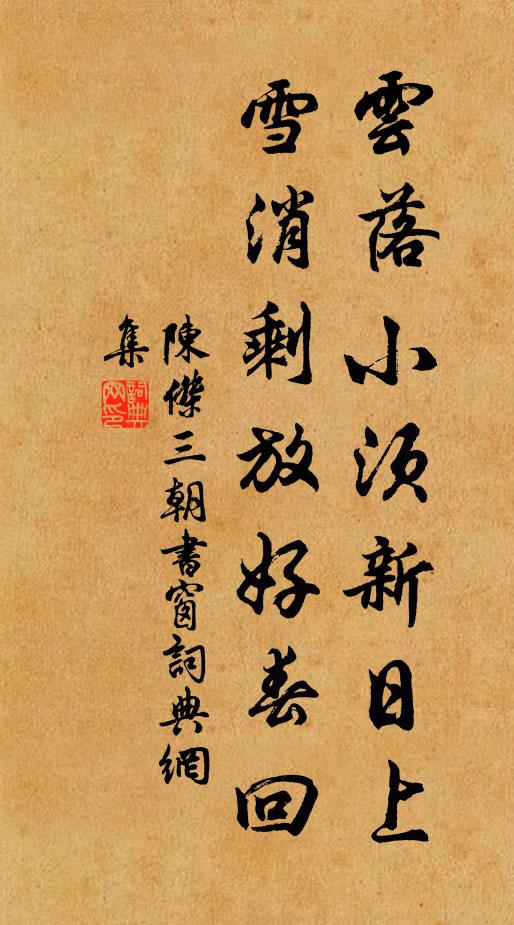 雲落小須新日上
雪消剩放好春回
陳傑三朝書窗詞典網
集
詞典網印